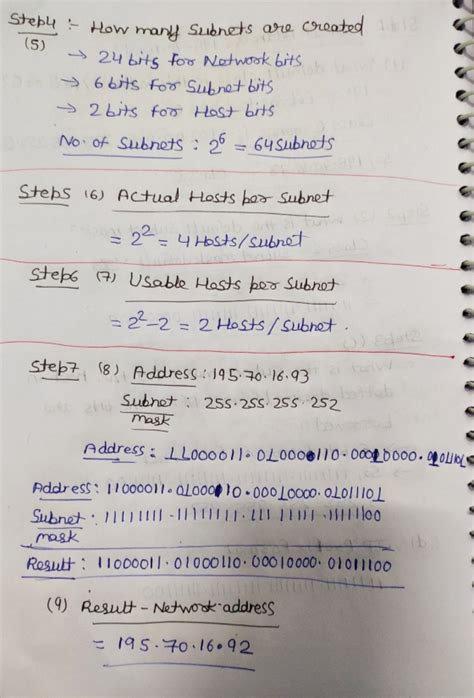 Step4 :- How many Subnets are Created
(5)
→ 24 bits for Network bits
→ 6 bits for Subnet bits
→ 2 bits for Host bits
No. of Subnets : 2^6 = 64 Subnets
Step5 (6) Actual Hosts per Subnet
= 2^2 = 4 Hosts/Subnet
Step6 (7) Usable Hosts per Subnet
= 2^2-2 = 2 Hosts/Subnet.
Step7 (8) Address : 195.70.16.93
Subnet mask : 255.255.255.252
Address : 11000011.01000110.00010000.01011101
Address : 11000011.01000110.00010000.01011101
Subnet mask : 11111111.11111111.11111111.11111100
Result : 11000011.01000110.00010000.01011100
(9) Result - Network address
= 195.70.16.92